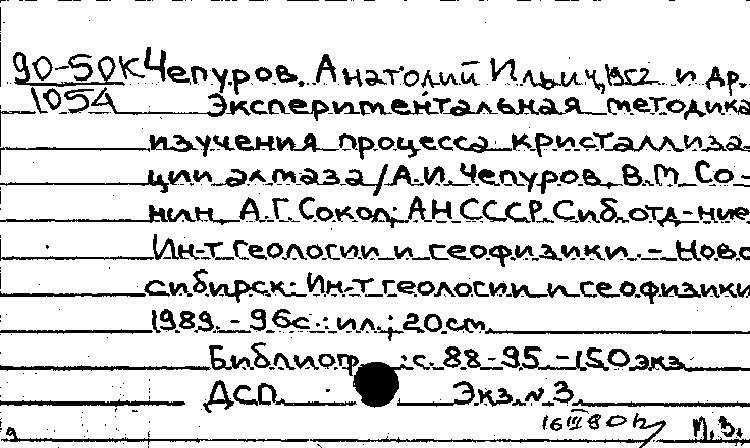 90-50К Чепуров, Анатолий Ильич, 1952 и др.
1054 Экспериментальная методика
изучения процесса кристаллиза
ции алмаза / А.И. Чепуров, В.М. Со-
нин, А.Г. Сокол; АН СССР. Сиб. отд-ние,
Ин-т геологии и геофизики. - Ново
сибирск: Ин-т геологии и геофизики
1989. - 96с.: ил.; 20см.
Библиогр.: с. 88-95. - 150 экз.
ДСП. Экз. N 3.
П. З.
9